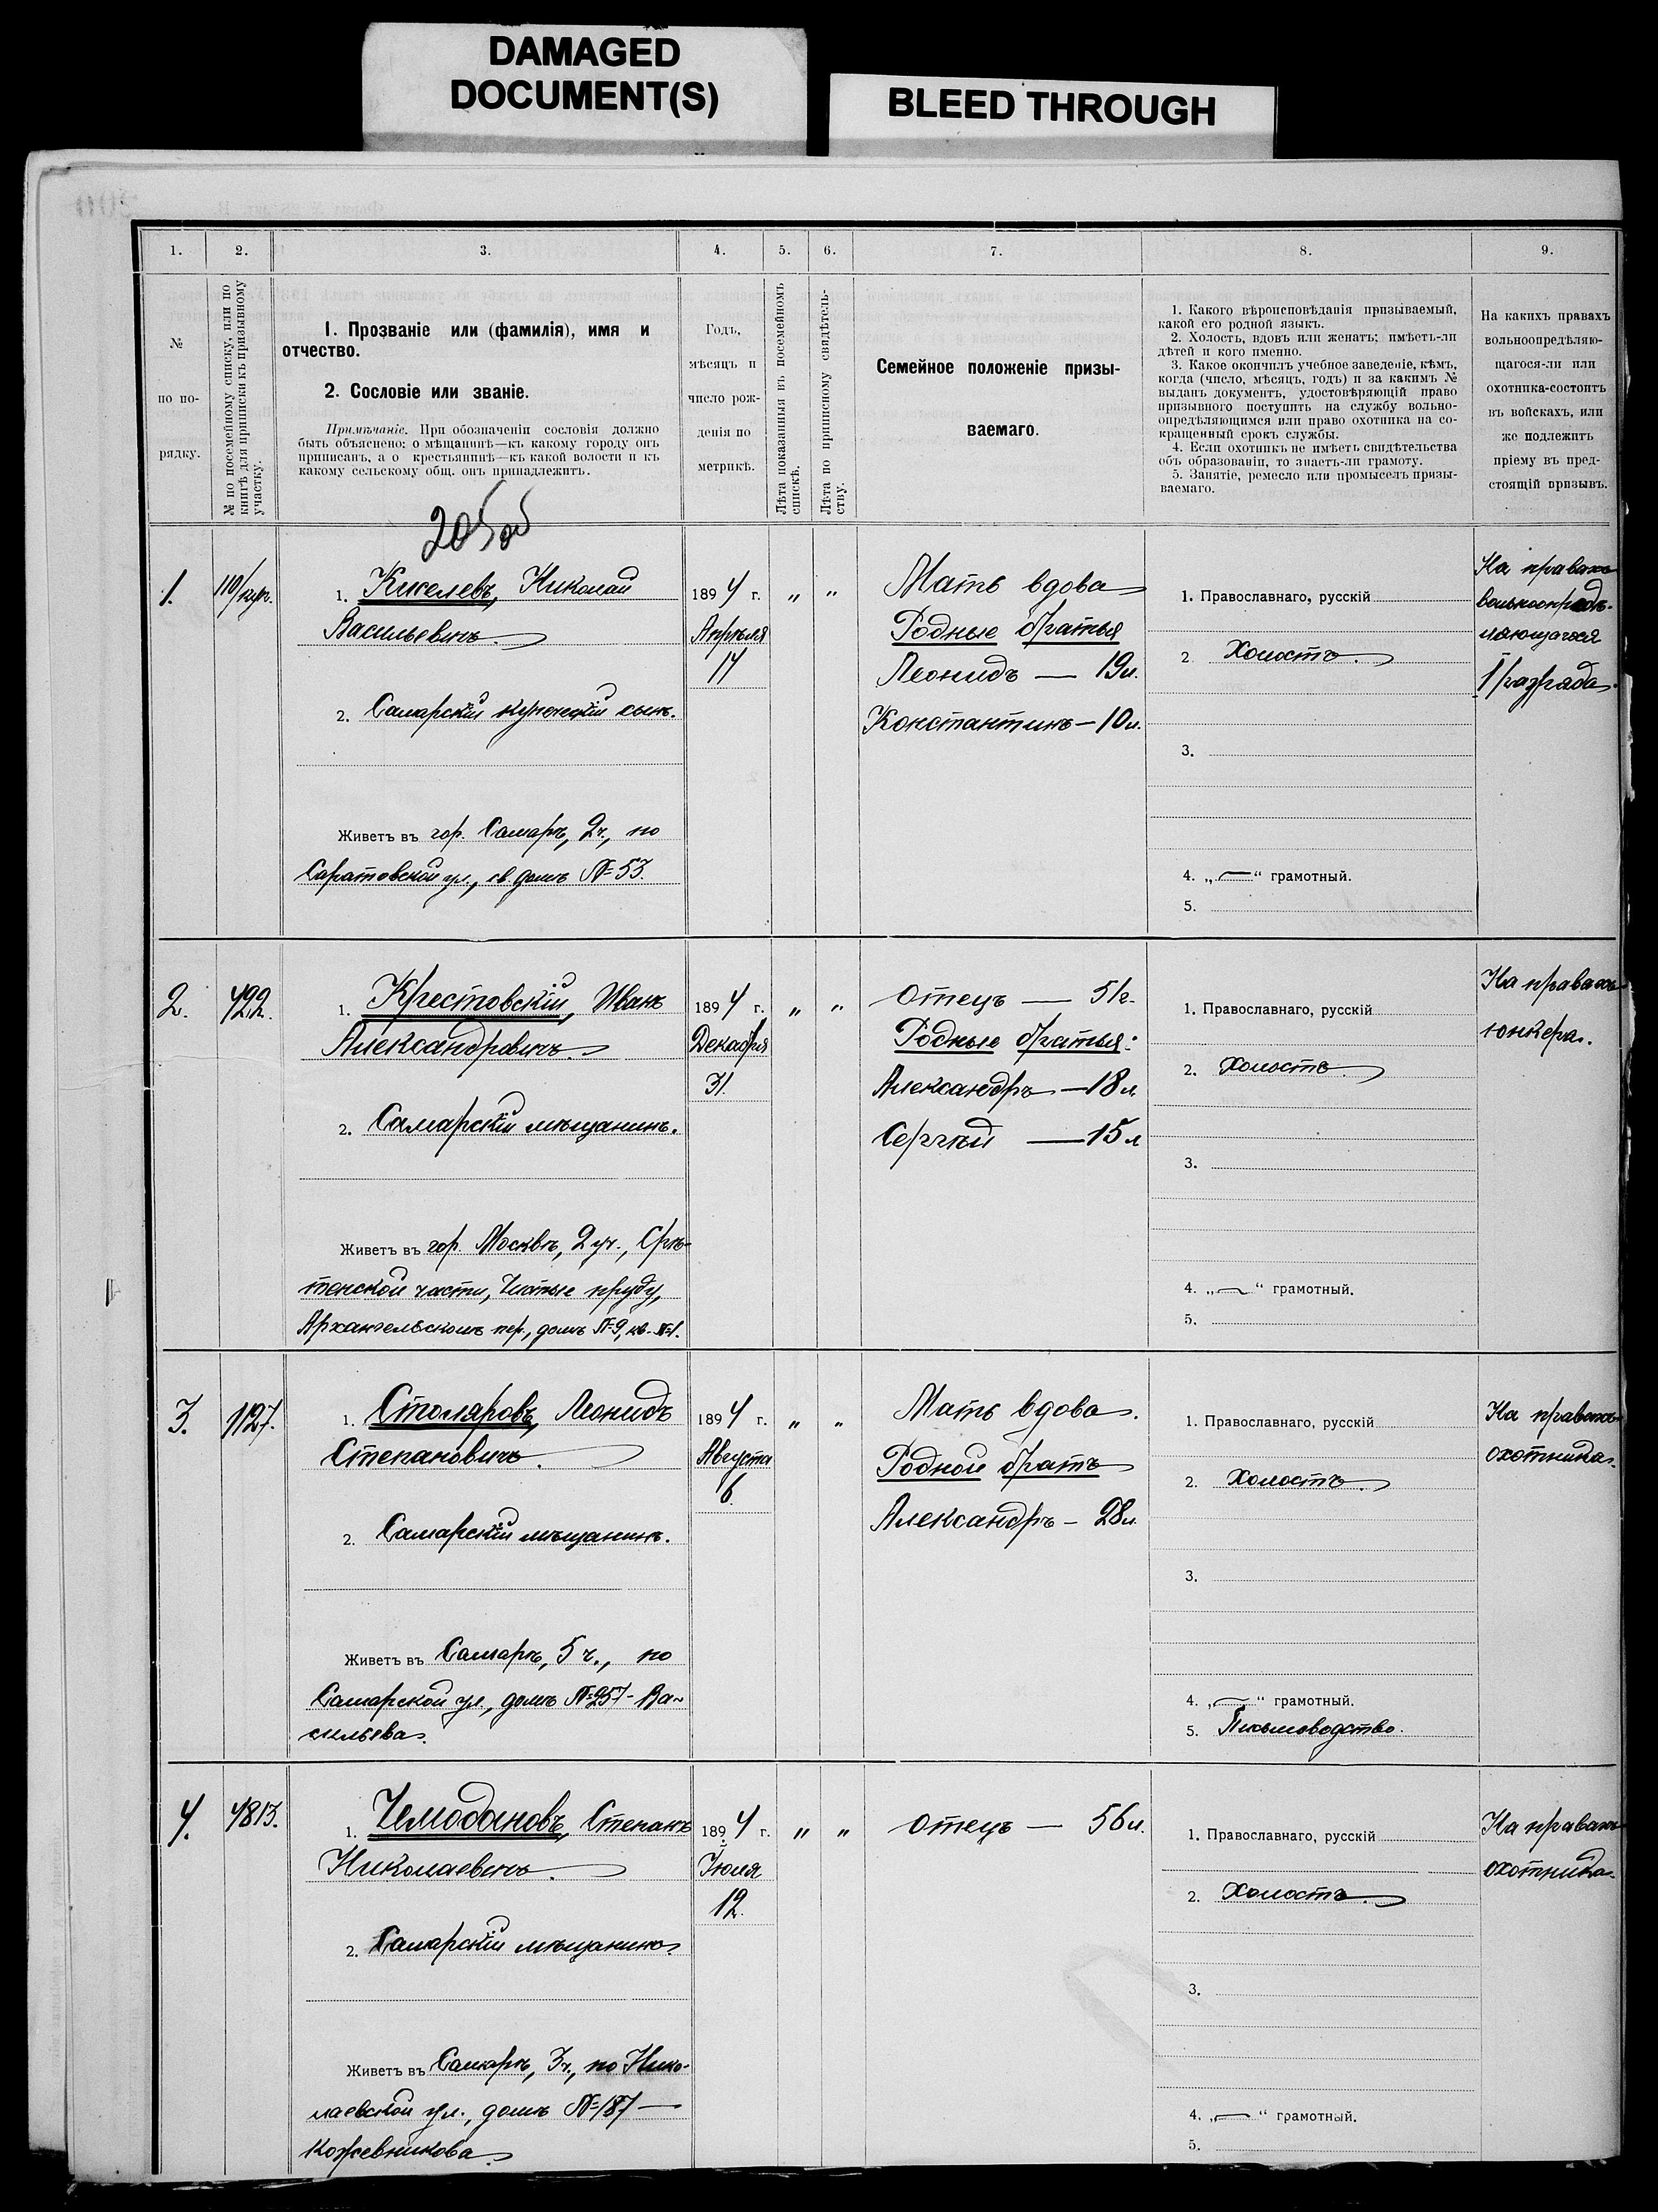 DAMAGED
DOCUMENT(S)
BLEED THROUGH
1.
2.
3.
4.
5.
6.
7.
8.
9.
№
по по-
рядку.
№ по посемейному списку, или по
книгѣ для приписки къ призывному
участку.
1. Прозваніе или (фамилія), имя и
отчество.
2. Сословіе или званіе.
Примѣчаніе. При обозначеніи сословія должно
быть объяснено: о мѣщанинѣ—къ какому городу онъ
приписанъ, а о крестьянинѣ—къ какой волости и къ
какому сельскому общ. онъ принадлежитъ.
Годъ,
мѣсяцъ и
число рож-
денія по
метрикѣ.
Лѣта показанныя въ посемейномъ
спискѣ.
Лѣта по приписному свидѣтель-
ству.
Семейное положеніе призы-
ваемаго.
1. Какого вѣроисповѣданія призываемый,
какой его родной языкъ.
2. Холостъ, вдовъ или женатъ; имѣетъ-ли
дѣтей и кого именно.
3. Какое окончилъ учебное заведеніе, кѣмъ,
когда (число, мѣсяцъ, годъ) и за какимъ №
выданъ документъ, удостовѣряющій право
призывного поступить на службу вольно-
опредѣляющимся или право охотника на со-
кращенный срокъ службы.
4. Если охотникъ не имѣетъ свидѣтельства
объ образованіи, то знаетъ-ли грамоту.
5. Занятіе, ремесло или промыселъ призы-
ваемаго.
На какихъ правахъ
вольноопредѣляю-
щагося-ли или
охотника-состоитъ
въ войскахъ, или
же подлежитъ
пріему въ пред-
стоящій призывъ.
205об
1.
110/куп.
1. Киселевъ, Николай
Васильевичъ.
2. Самарскій купеческій сынъ.
Живетъ въ гор. Самарѣ, 2ч., по
Саратовской ул., св. домъ №53.
1894 г.
Апрѣля
14
" "
Мать вдова
Родные братья
Леонидъ — 19л.
Константинъ — 10л.
1. Православнаго, русскій
2 Холостъ.
3.
4. „—“ грамотный.
5.
На правахъ
вольноопредѣ-
ляющагося
1 разряда.
2.
422.
1. Крестовскій, Иванъ
Александровичъ.
2. Самарскій мѣщанинъ.
Живетъ въ гор. Москвѣ, 2 уч., Срѣ-
тенской части, Чистые пруды,
Архангельскомъ пер., домъ №9, кв. №1.
1894 г.
Декабря
31.
" "
Отецъ — 51г.
Родные братья:
Александръ — 18 л.
Сергѣй — 15 л
1. Православнаго, русскій
2. Холостъ.
3.
4. „—“ грамотный.
5.
На правахъ
юнкера.
3.
1127.
1. Столяровъ, Леонидъ
Степановичъ.
2. Самарскій мѣщанинъ.
Живетъ въ Самарѣ, 5 ч., по
Самарской ул., домъ №257 - Ва-
сильева.
1894 г.
Августа
6.
" "
Мать вдова.
Родной братъ
Александръ — 28л.
1. Православнаго, русскій
2. Холостъ.
3.
4. „—“ грамотный.
5. Письмоводство.
На правахъ
охотника.
4.
4813.
1. Чемодановъ, Степанъ
Николаевичъ.
2. Самарскій мѣщанинъ.
Живетъ въ Самарѣ, 3ч., по Нико-
лаевской ул., домъ №187 —
Кожевникова.
1894 г.
Іюля
12.
" "
Отецъ — 56л.
1. Православнаго, русскій
2. Холостъ.
3.
4. „—“ грамотный.
5.
На правахъ
охотника.